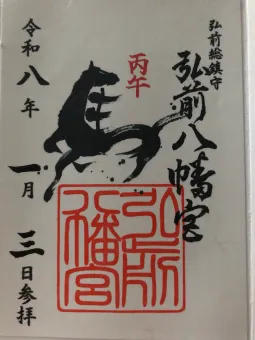 弘前総鎮守
弘前八幡宮
丙午
馬
令和八年
一月三日参拝
弘前八幡宮